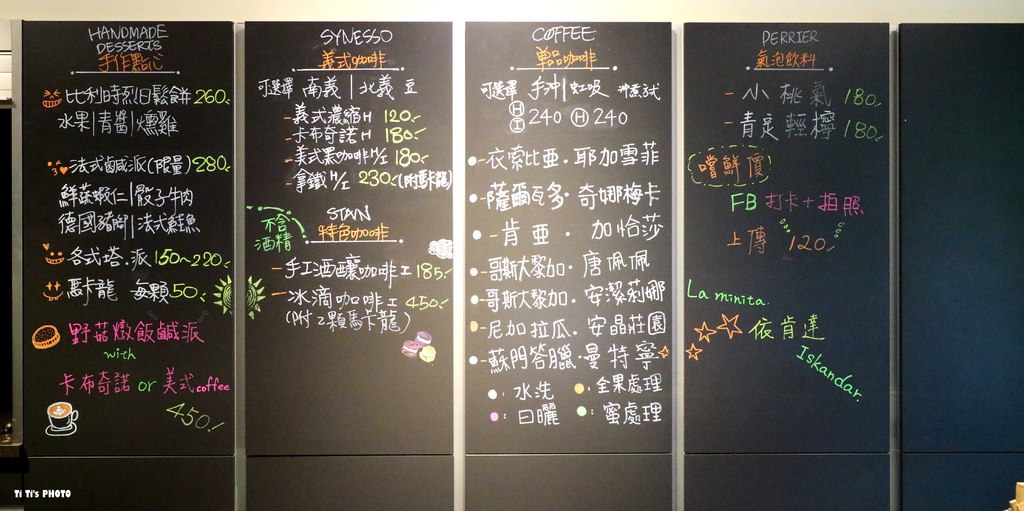 HANDMADE
DESSERTS
手作點心
比利時烈日鬆餅 260.-
水果|青醬|燻雞
法式鹹派(限量) 280.-
鮮蔬蝦仁|骰子牛肉
德國豬腳|法式鮭魚
各式塔.派 150~220.-
馬卡龍 每顆50.-
野菇燉飯鹹派
with
卡布奇諾 or 美式coffee
450.-
SYNESSO
義式咖啡
可選擇 南義|北義 豆
-義式濃縮H 120.-
-卡布奇諾H 180.-
-美式黑咖啡H/I 180.-
-拿鐵H/I 230.-(附馬卡龍)
不含
酒精
特色咖啡
-手工酒釀咖啡I 185.-
-冰滴咖啡I 450.-
(附2顆馬卡龍)
COFFEE
單品咖啡
可選擇 手沖|虹吸 沖煮式
H
I 240 H 240
-衣索比亞.耶加雪菲
-薩爾瓦多.奇娜梅卡
-肯亞.加恰莎
-哥斯大黎加.唐佩佩
-哥斯大黎加.安潔莉娜
-尼加拉瓜.安晶莊園
-蘇門答臘.曼特寧
:水洗 :全果處理
:日曬 :蜜處理
PERRIER
氣泡飲料
-小桃氣 180.-
-青定輕檸 180.-
嚐鮮價
FB打卡+拍照
上傳 120.-
La minita.
依肯達
Iskandar.
Ti Ti's PHOTO